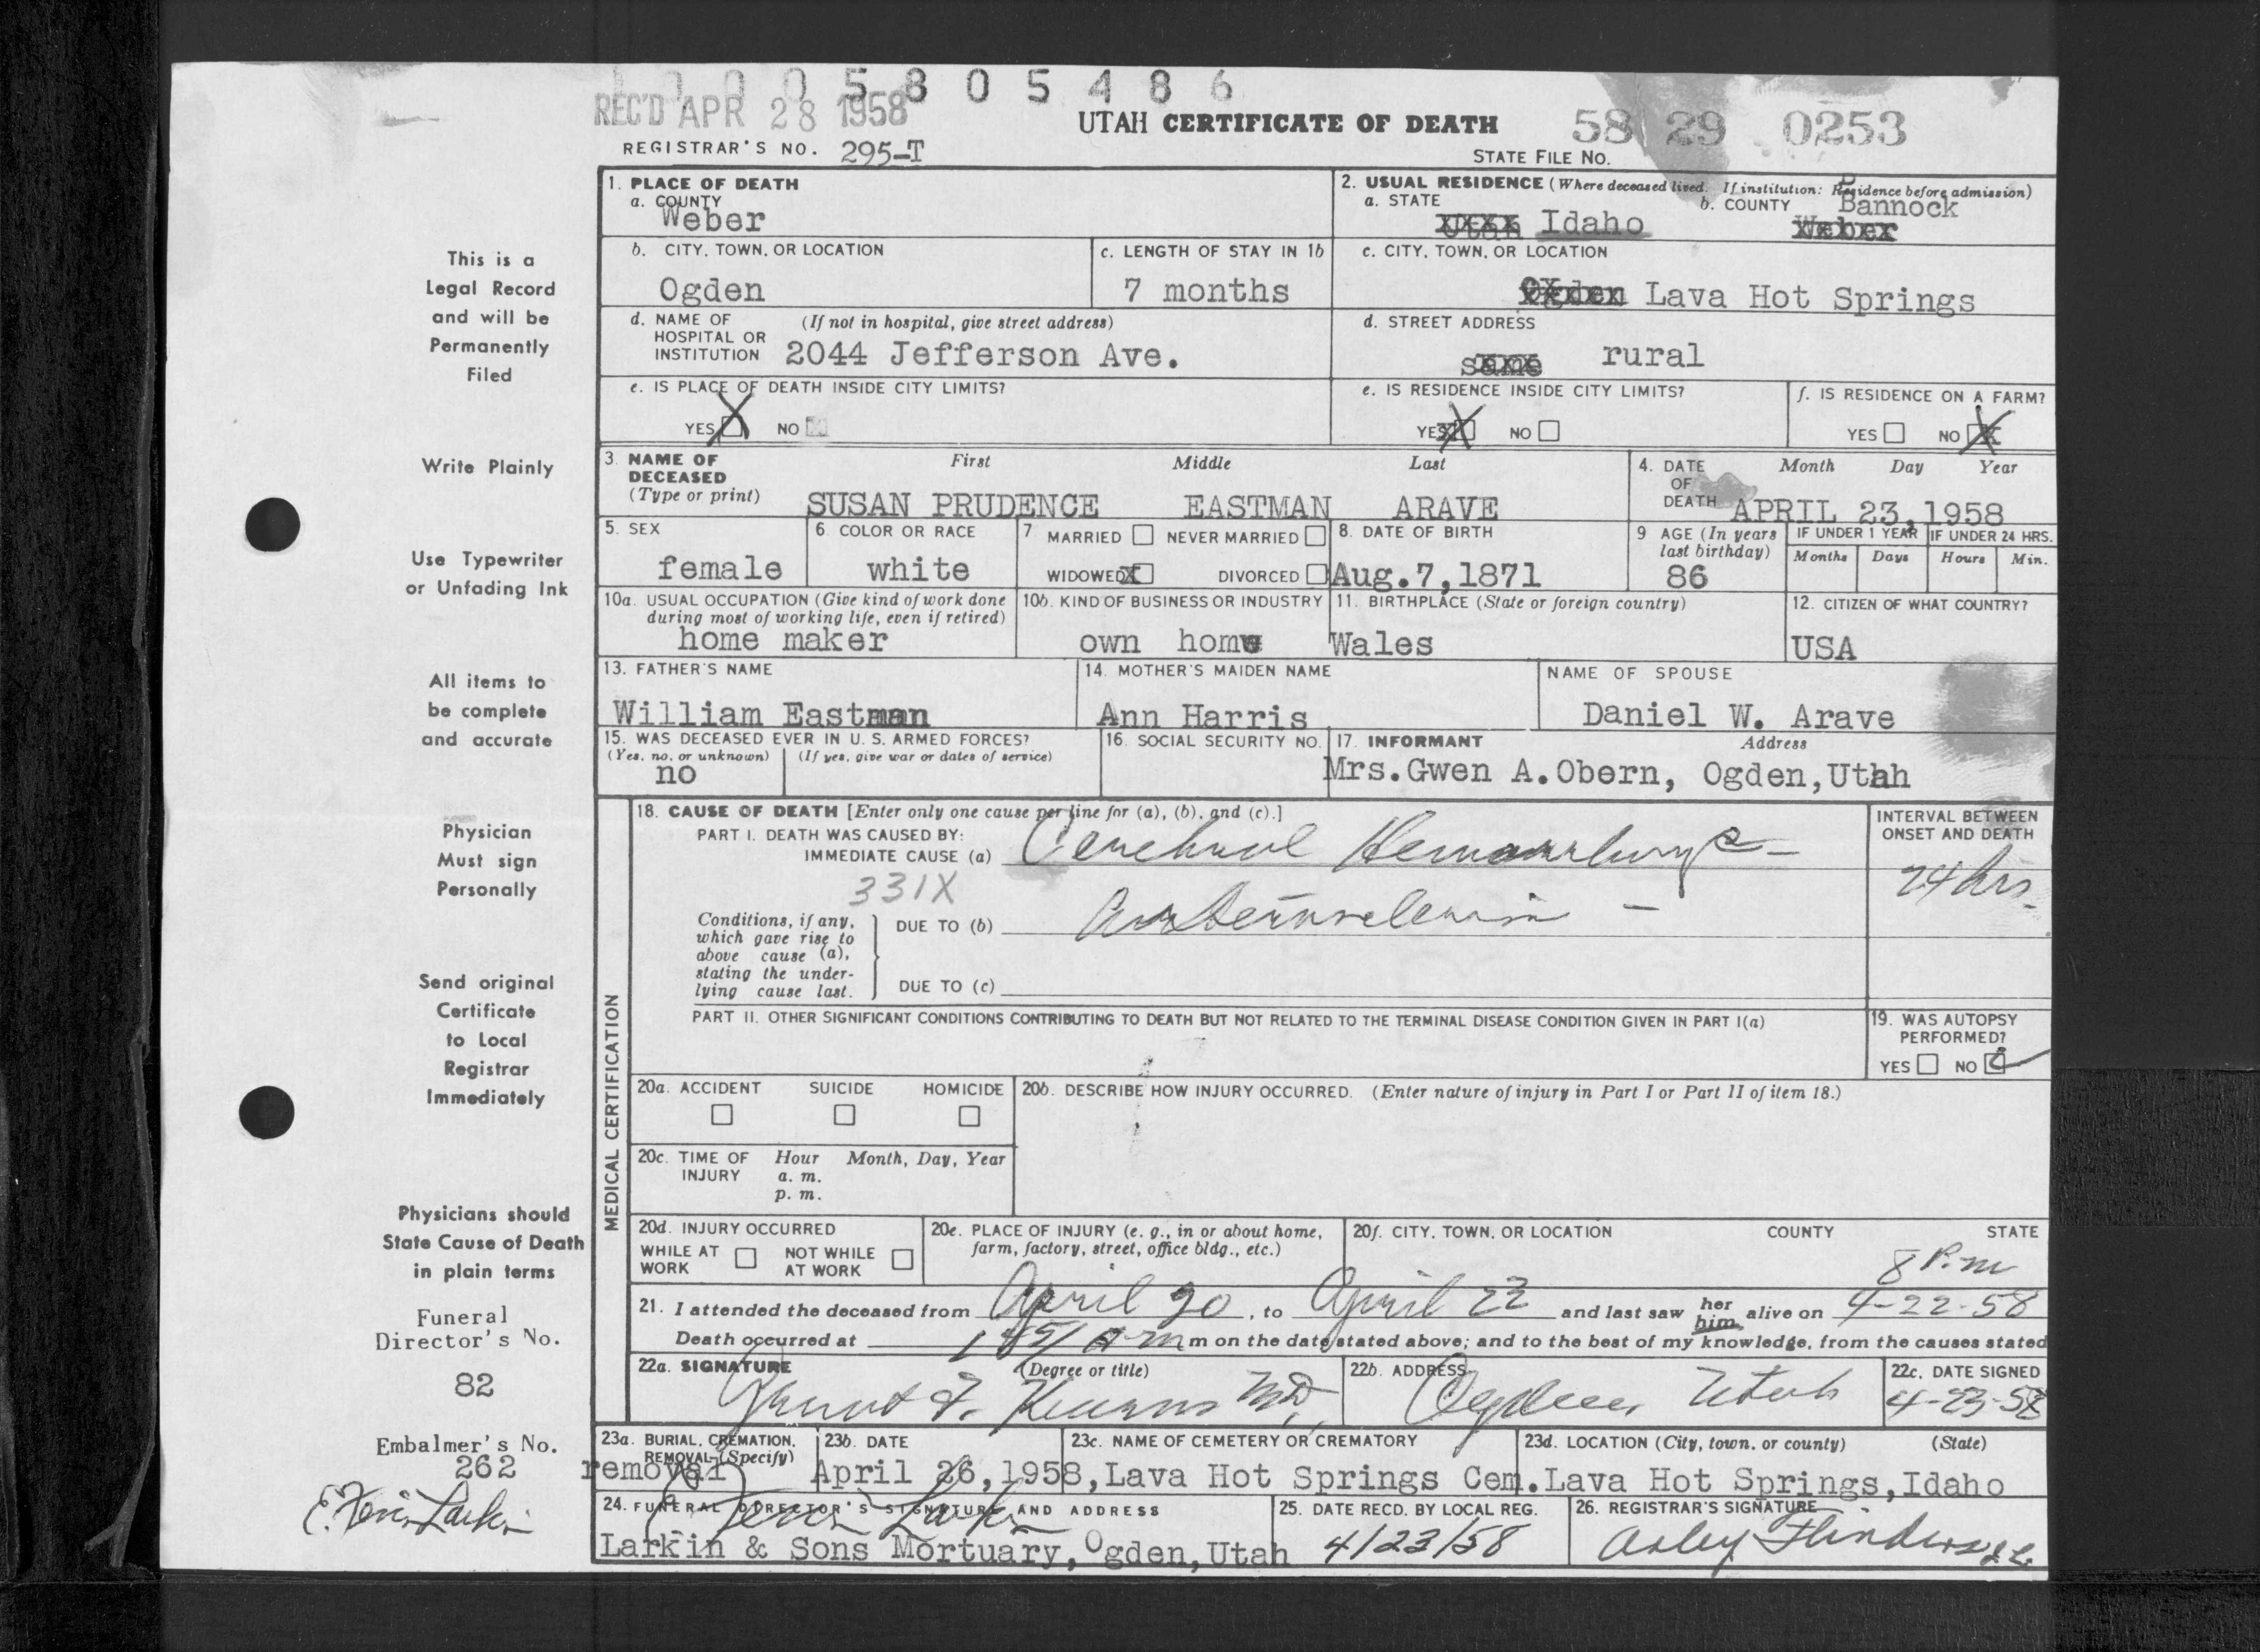 0 0 0 5 8 0 5 4 8 6
REC'D APR 28 1958
UTAH CERTIFICATE OF DEATH
58 29 0253
REGISTRAR'S NO. 295-T
STATE FILE NO.
1. PLACE OF DEATH
a. COUNTY
Weber
2. USUAL RESIDENCE (Where deceased lived. If institution: Residence before admission)
a. STATE
Utah Idaho
b. COUNTY
Bannock
Weber
b. CITY, TOWN, OR LOCATION
Ogden
c. LENGTH OF STAY IN 1b
7 months
c. CITY, TOWN, OR LOCATION
Ogden Lava Hot Springs
d. NAME OF HOSPITAL OR INSTITUTION
(If not in hospital, give street address)
2044 Jefferson Ave.
d. STREET ADDRESS
same rural
e. IS PLACE OF DEATH INSIDE CITY LIMITS?
YES X NO
e. IS RESIDENCE INSIDE CITY LIMITS?
YES X NO
f. IS RESIDENCE ON A FARM?
YES NO X
3. NAME OF DECEASED
(Type or print)
First Middle Last
SUSAN PRUDENCE EASTMAN ARAVE
4. DATE OF DEATH
Month Day Year
APRIL 23, 1958
5. SEX
female
6. COLOR OR RACE
white
7. MARRIED NEVER MARRIED
WIDOWED X DIVORCED
8. DATE OF BIRTH
Aug.7,1871
9 AGE (In years last birthday)
86
IF UNDER 1 YEAR
Months Days
IF UNDER 24 HRS.
Hours Min.
10a. USUAL OCCUPATION (Give kind of work done during most of working life, even if retired)
home maker
10b. KIND OF BUSINESS OR INDUSTRY
own home
11. BIRTHPLACE (State or foreign country)
Wales
12. CITIZEN OF WHAT COUNTRY?
USA
13. FATHER'S NAME
William Eastman
14. MOTHER'S MAIDEN NAME
Ann Harris
NAME OF SPOUSE
Daniel W. Arave
15. WAS DECEASED EVER IN U. S. ARMED FORCES?
(Yes, no, or unknown) (If yes, give war or dates of service)
no
16. SOCIAL SECURITY NO.
17. INFORMANT Address
Mrs.Gwen A.Obern, Ogden,Utah
MEDICAL CERTIFICATION
18. CAUSE OF DEATH [Enter only one cause per line for (a), (b), and (c).]
PART I. DEATH WAS CAUSED BY:
IMMEDIATE CAUSE (a) Cerebral Hemorrhage
331X
INTERVAL BETWEEN ONSET AND DEATH
24 hrs.
Conditions, if any, which gave rise to above cause (a), stating the underlying cause last.
DUE TO (b) Arteriosclerosis
DUE TO (c)
PART II. OTHER SIGNIFICANT CONDITIONS CONTRIBUTING TO DEATH BUT NOT RELATED TO THE TERMINAL DISEASE CONDITION GIVEN IN PART I(a)
19. WAS AUTOPSY PERFORMED?
YES NO
20a. ACCIDENT SUICIDE HOMICIDE
20b. DESCRIBE HOW INJURY OCCURRED. (Enter nature of injury in Part I or Part II of item 18.)
20c. TIME OF INJURY Hour Month, Day, Year
a. m.
p. m.
20d. INJURY OCCURRED
WHILE AT WORK NOT WHILE AT WORK
20e. PLACE OF INJURY (e. g., in or about home, farm, factory, street, office bldg., etc.)
20f. CITY, TOWN, OR LOCATION COUNTY STATE
8 P.m
21. I attended the deceased from April 20, to April 22 and last saw her him alive on 4-22-58
Death occurred at m on the date stated above; and to the best of my knowledge, from the causes stated
22a. SIGNATURE (Degree or title)
F. Kearns MD.
22b. ADDRESS
Ogden Utah
22c. DATE SIGNED
4-23-58
23a. BURIAL, CREMATION, REMOVAL (Specify)
removal
23b. DATE
April 26,1958,
23c. NAME OF CEMETERY OR CREMATORY
Lava Hot Springs Cem.
23d. LOCATION (City, town, or county) (State)
Lava Hot Springs,Idaho
24. FUNERAL DIRECTOR'S SIGNATURE AND ADDRESS
Larkin
Larkin & Sons Mortuary, Ogden,Utah
25. DATE RECD. BY LOCAL REG.
4/23/58
26. REGISTRAR'S SIGNATURE
Flinders
This is a
Legal Record
and will be
Permanently
Filed
Write Plainly
Use Typewriter
or Unfading Ink
All items to
be complete
and accurate
Physician
Must sign
Personally
Send original
Certificate
to Local
Registrar
Immediately
Physicians should
State Cause of Death
in plain terms
Funeral
Director's No.
82
Embalmer's No.
262
Larkin